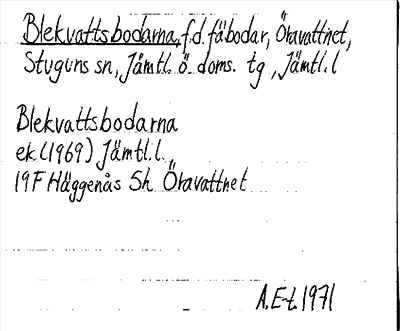 Blekvattsbodarna, f.d. fäbodar, Öravattnet,
Stuguns sn, Jämtl. ö. doms. tg, Jämtl. l
Blekvattsbodarna
ek. (1969) Jämtl. l.
19F Häggenås 5h Öravattnet
A.E-t. 1971